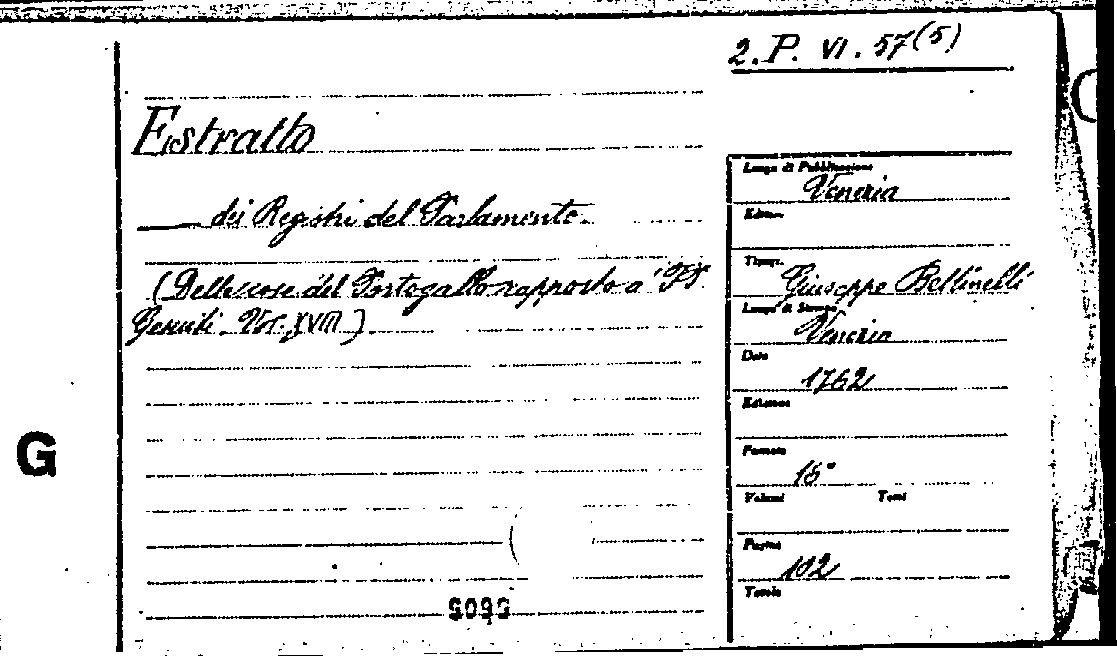 2. P. VI. 57(5)
Estratto
dei Registri del Parlamento.
(Delle cose del Portogallo rapporto a' PP.
Gesuiti. Vol. XVIII)
Luogo di Pubblicazione
Venezia
Editore
Tipogr.
Giuseppe Bettinelli
Luogo di Stampa
Venezia
Data
1762
Edizione
Formato
16°
Volumi Tomi
Pagine
102
Tavole
G